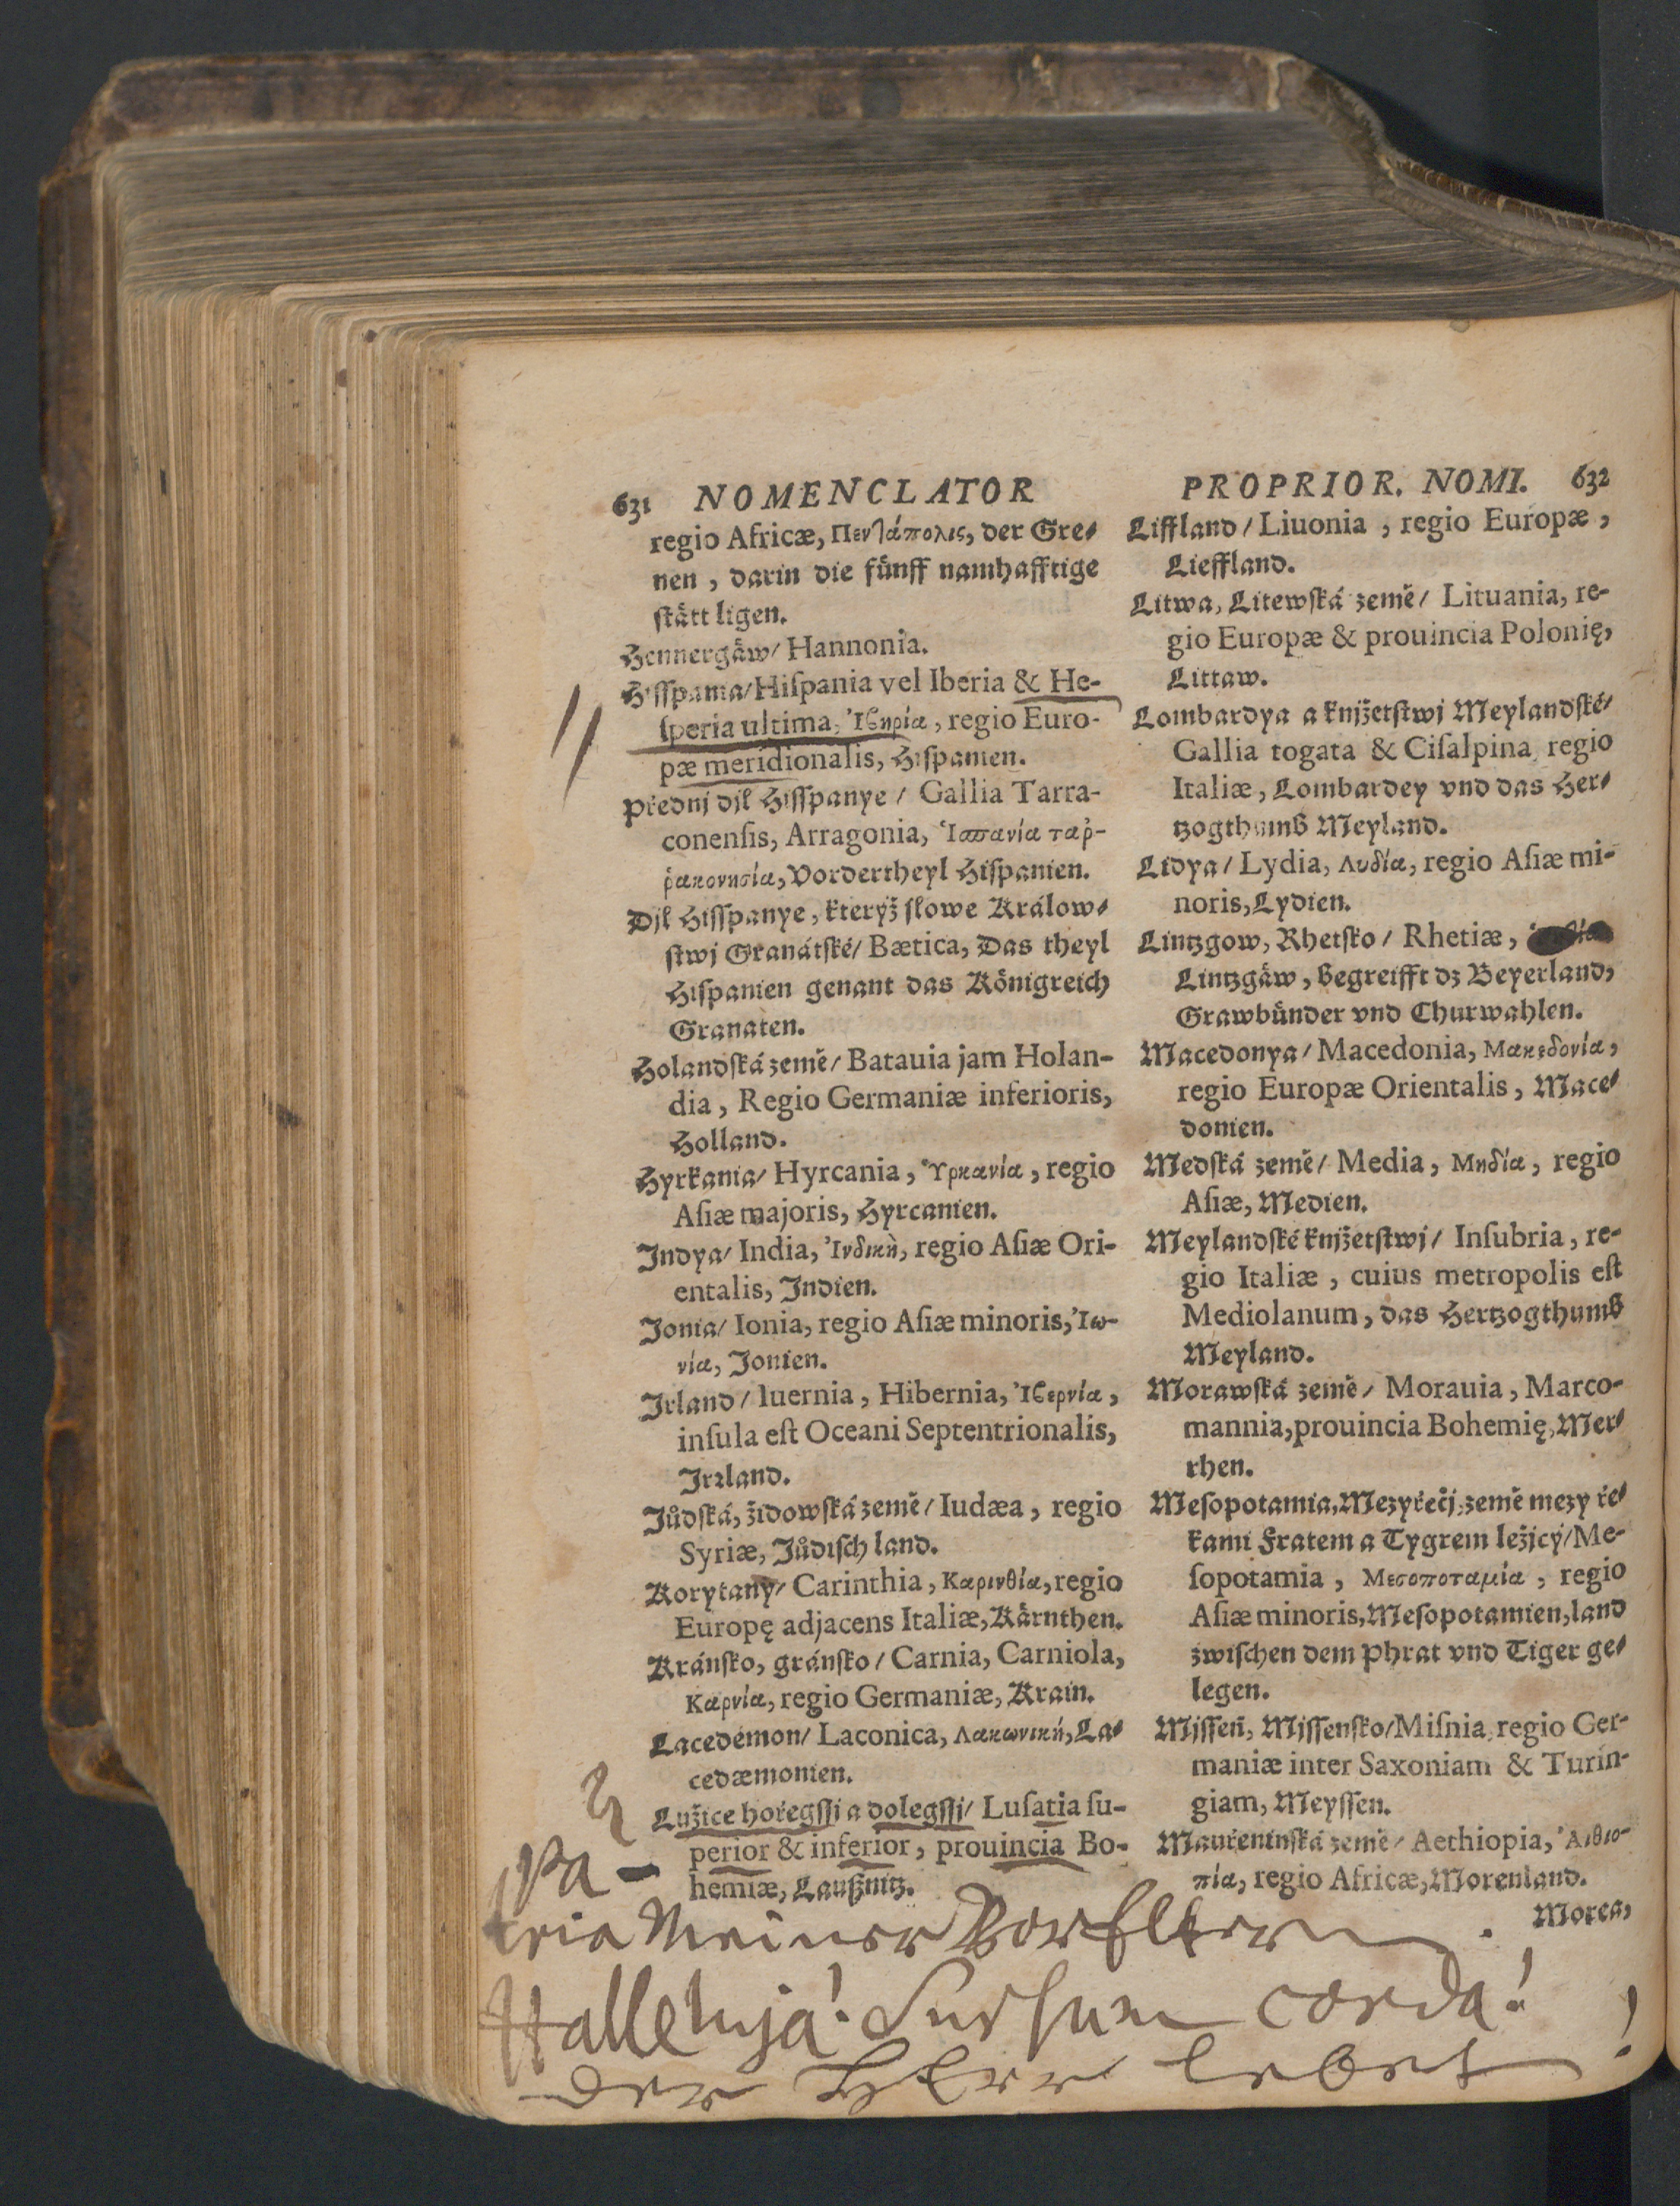 631 NOMENCLATOR
regio Africæ, Πενταπολις, der Gre⸗
nen, darin die fünff namhafftige
stätt ligen.
Hennergäw/ Hannonia.
Hiſſpania/ Hiſpania vel Iberia & He-
ſperia ultima, Ἰβηρία, regio Euro-
pæ meridionalis, Hiſpanien.
Přednj djl Hiſſpanye / Gallia Tarra-
conenſis, Arragonia, Ἱσπανία ταῤ-
ῥακονησία, Vordertheyl Hiſpanien.
Djl Hiſſpanye, kterýž ſlowe Králow⸗
ſtwj Granátſké/ Bætica, Das theyl
Hiſpanien genant das Königreich
Granaten.
Holandſká země/ Batauia jam Holan-
dia, Regio Germaniæ inferioris,
Holland.
Hyrkania/ Hyrcania, Ὑρκανία, regio
Aſiæ majoris, Hyrcanien.
Indya/ India, Ἰνδικὴ, regio Aſiæ Ori-
entalis, Indien.
Jonia/ Ionia, regio Aſiæ minoris, Ἰω-
νία, Jonien.
Irland/ Iuernia, Hibernia, Ἰβερνία,
inſula eſt Oceani Septentrionalis,
Irꝛland.
Jůdſká, židowſká země/ Iudæa, regio
Syriæ, Jůdiſch land.
Korytany/ Carinthia, Καρινθία, regio
Europę adjacens Italiæ, Kärnthen.
Kránſko, gránſko/ Carnia, Carniola,
Καρνία, regio Germaniæ, Krain.
Lacedémon/ Laconica, Λακωνική, La⸗
cedæmonien.
Lužice hořegſſi a dolegſſi/ Luſatia ſu-
perior & inferior, prouincia Bo-
hemiæ, Laußnitz.
PROPRIOR. NOMI. 632
Liffland/ Liuonia, regio Europæ,
Lieffland.
Litwa, Litewſká země/ Lituania, re-
gio Europæ & prouincia Polonię,
Littaw.
Lombardya a knjžetſtwj Meylandſké/
Gallia togata & Ciſalpina, regio
Italiæ, Lombardey vnd das Her⸗
tzogthumß Meyland.
Lidya/ Lydia, Λυδία, regio Aſiæ mi-
noris, Lydien.
Lintzgow, Rhetſko/ Rhetiæ,
Lintzgäw, begreifft dz Beyerland,
Grawbünder vnd Churwahlen.
Macedonya/ Macedonia, Μακεδονία,
regio Europæ Orientalis, Mace⸗
donien.
Medſká země/ Media, Μηδία, regio
Aſiæ, Medien.
Meylandſké knjžetſtwj/ Inſubria, re-
gio Italiæ, cuius metropolis eſt
Mediolanum, das Hertzogthumß
Meyland.
Morawſká země/ Morauia, Marco-
mannia, prouincia Bohemię, Mer⸗
rhen.
Meſopotamia, Mezyřečj, země mezy ře⸗
kami Fratem a Tygrem ležjcý/ Me-
ſopotamia, Μεσοποταμία, regio
Aſiæ minoris, Meſopotamien, land
zwiſchen dem Phrat vnd Tiger ge⸗
legen.
Mjſſeň, Mjſſenſko/ Miſnia, regio Ger-
maniæ inter Saxoniam & Turin-
giam, Meyſſen.
Mauřeninſká země/ Aethiopia, Ἀιθιο-
πία, regio Africæ, Morenland.
Morea,
Pa-
tria Meiner VorEltern.
Halleluja! Sursum corda!
Der HErr lebet!